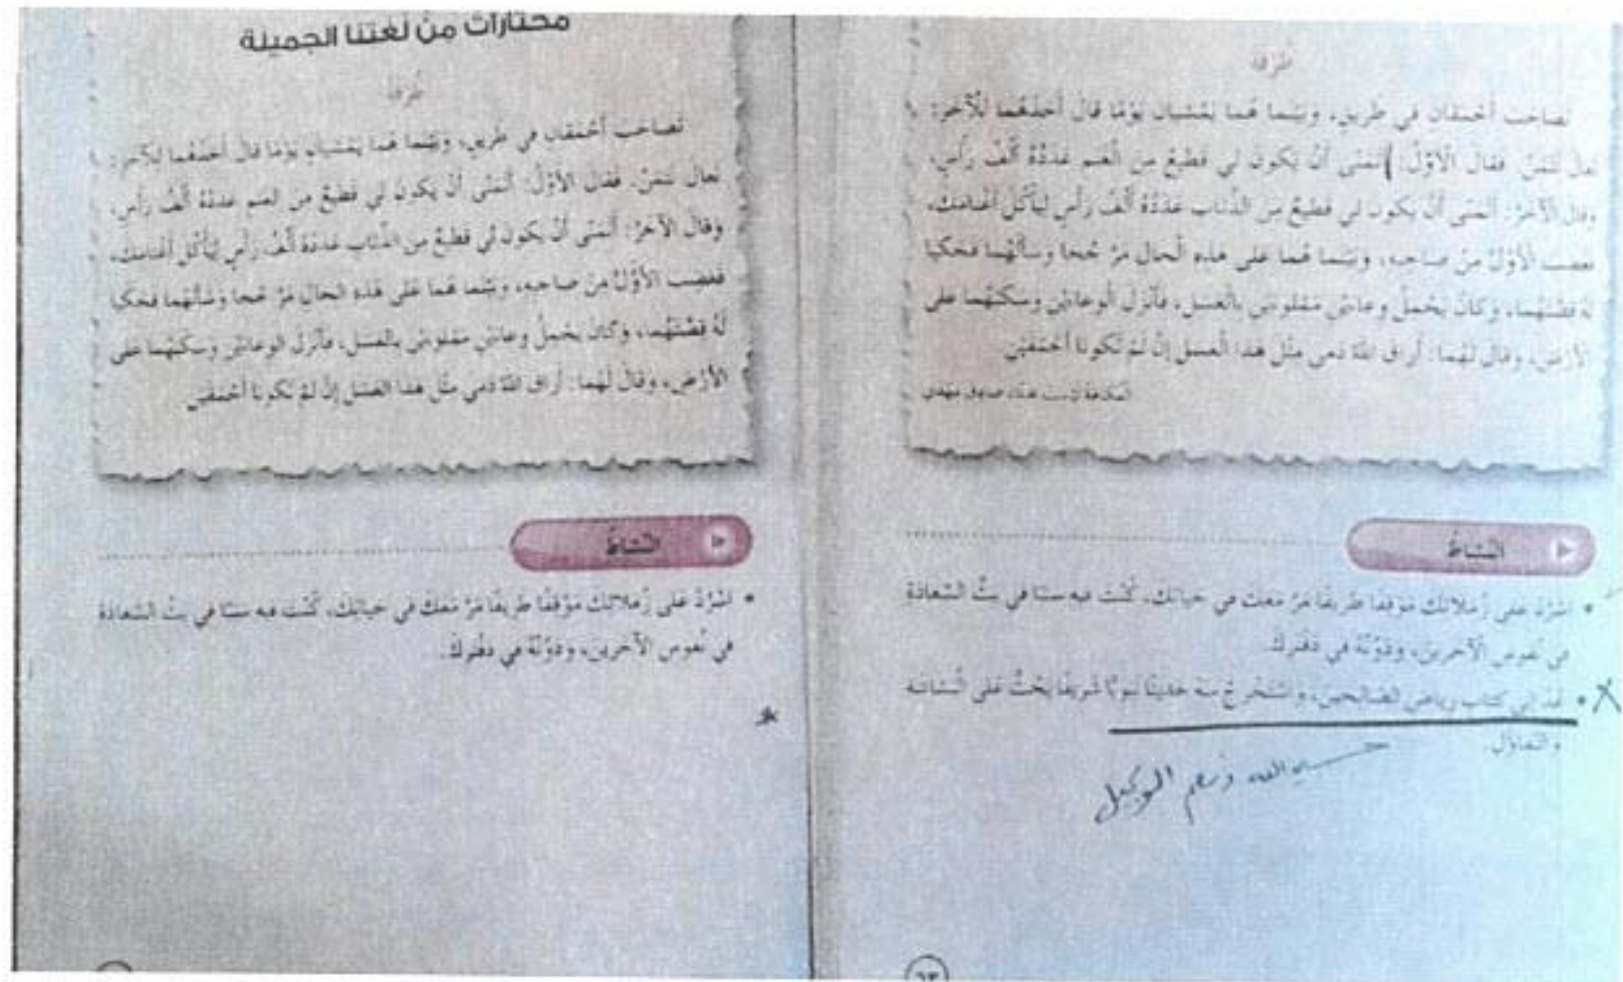 طُرْفَة
تَصاحَبَ أَحْمَقانِ في طَريقٍ، وَبَيْنَما هُما يَمْشِيانِ يَوْمًا قالَ أَحَدُهُما لِلْآخَرِ:
تعالَ نَتَمَنَّ. فَقالَ الْأَوَّلُ: أَتَمَنّى أَنْ يَكونَ لي قَطيعٌ مِنَ الْغَنَمِ عَدَدُهُ أَلْفُ رَأْسٍ،
وقالَ الْآخَرُ: أَتَمَنّى أَنْ يَكونَ لي قَطيعٌ مِنَ الذِّئابِ عَدَدُهُ أَلْفُ رَأْسٍ لِيَأْكُلَ أَغْنامَكَ،
فغَضِبَ الْأَوَّلُ مِنْ صاحِبِه، وَبَيْنَما هُما عَلى هذِهِ الْحالِ مَرَّ جُحا وسَأَلَهُما فَحَكَيا
لَهُ قِصَّتَهُما، وَكانَ يَحْمِلُ وِعاءَيْنِ مَمْلوءَيْنِ بِالْعَسَلِ، فَأَنْزَلَ الْوِعاءَيْنِ وسَكَبَهُما عَلى
الْأَرْضِ، وَقالَ لَهُما: أَراقَ اللهُ دَمي مِثْلَ هذا الْعَسَلِ إنْ لَمْ تَكونا أَحْمَقَيْنِ
صادق مهدي
النَّشاطُ
• اسْرُدْ عَلى زُمَلائِكَ مَوْقِفًا طَريفًا مَرَّ مَعَكَ في حَياتِكَ، كُنْتَ فيه سَبَبًا في بَثِّ السَّعادَةِ
في نُفوسِ الْآخَرينَ، وَدَوِّنْهُ في دَفْتَرِكَ.
X • عُدْ إلى كتاب رياض الصّالحين، وَاسْتَخْرِجْ مِنْهُ حَديثًا نَبَوِيًّا شَريفًا يَحُثُّ عَلى الْبَشاشَةِ
والتَّفاؤُلِ.
حسبي الله ونعم الوكيل
٦٣
مختارات من لغتنا الجميلة
طُرْفَة
تَصاحَبَ أَحْمَقانِ في طَريقٍ، وَبَيْنَما هُما يَمْشِيانِ يَوْمًا قالَ أَحَدُهُما لِلْآخَرِ:
تعالَ نَتَمَنَّ. فَقالَ الأَوَّلُ: أَتَمَنّى أَنْ يَكونَ لي قَطيعٌ مِنَ الغنم عَدَدُهُ أَلْفُ رَأْسٍ،
وقالَ الآخَرُ: أَتَمَنّى أَنْ يَكونَ لي قَطيعٌ مِنَ الذِّئاب عَدَدُهُ أَلْفُ رَأْسٍ لِيَأْكُلَ أَغْنامَكَ،
فغَضِبَ الأَوَّلُ مِنْ صاحِبِه، وَبَيْنَما هُما عَلى هذِهِ الحال مَرَّ جُحا وَسَأَلَهُما فَحَكَيا
لَهُ قِصَّتَهُما، وَكانَ يَحْمِلُ وِعاءَيْنِ مَمْلوءَيْنِ بِالعَسَلِ، فَأَنْزَلَ الوِعاءَيْنِ وَسَكَبَهُما عَلى
الأَرْضِ، وَقالَ لَهُما: أَراقَ اللهُ دَمي مِثْلَ هذا العَسَلِ إنْ لَمْ تَكونا أَحْمَقَيْنِ
النَّشاطُ
• اسْرُدْ عَلى زُمَلائِكَ مَوْقِفًا طَريفًا مَرَّ مَعَكَ في حَياتِكَ، كُنْتَ فيه سَبَبًا في بَثِّ السَّعادَةِ
في نُفوسِ الآخَرينَ، وَدَوِّنْهُ في دَفْتَرِكَ.